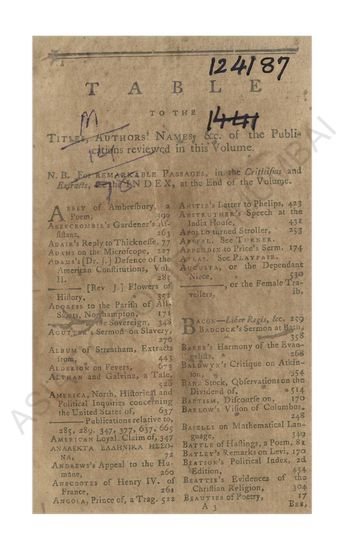 124187
TABLE
TO THE
1441
TITLES, AUTHORS' NAMES, &c. of the Publi-
cations reviewed in this Volume.
N. B. For REMARKABLE PASSAGES, in the Criticisms and
Extracts, see the INDEX, at the End of the Volume.
ABBEY of Ambresbury, a
Poem, 390
ABERCROMBIE'S Gardener's As-
sistant, 263
ADAIR'S Reply to Thicknesse, 77
ADAMS on the Microscope, 127
ADAMS'S [Dr. J.] Defence of the
American Constitutions, Vol.
II.
——, [Rev J.] Flowers of
History, 352
ADDRESS to the Parish of All-
Saints, Northampton, 171
—— Sovereign, 348
Sermon on Slavery,
276
ALBUM of Streatham, Extracts
from, 443
ALDERSON on Fevers, 673
ALTHAN and Galvina, a Tale,
528
AMERICA, North, Historical and
Political Inquiries concerning
the United States of, 637
—— Publications relative to,
285, 289, 347, 377, 637, 665
AMERICAN Loyal. Claim of, 347
ΑΝΑΛΕΚΤΑ ΕΛΛΗΝΙΚΑ ΗΣΣΟ-
ΝΑ, 72
ANDREWS'S Appeal to the Hu-
mane, 260
ANECDOTES of Henry IV. of
France, 261
ANGOLA, Prince of, a Trag. 522
ANSTIS'S Letter to Phelips, 423
ANSTRUTHER'S Speech at the
India House, 431
APOLLO turned Stroller, 253
APPEAL. See TURNER.
APPENDIX to Price's Serm. 174
ATLAS. See PLAYFAIR.
AUGUSTA, or the Dependant
Niece, 530
——, or the Female Tra-
vellers, ib.
BACON—Liber Regis, &c. 259
BADCOCK'S Sermon at Bath,
358
BAKER'S Harmony of the Evan-
gelists, 268
BALDWYN'S Critique on Auction,
556
BANK Stock, Observations on the
Dividend of, 514
BAPTISM, Discourse on, 170
BARLOW'S Vision of Columbus,
248
BASELLI on Mathematical Lan-
guage, 349
BATTLE of Hastings, a Poem, 82
BAYLEY'S Remarks on Levi, 170
BEATSON'S Political Index, 2d
Edition, 454
BEATTIE'S Evidences of the
Christian Religion, 304
BEAUTIES of Poetry, 17
A 3 BEE,